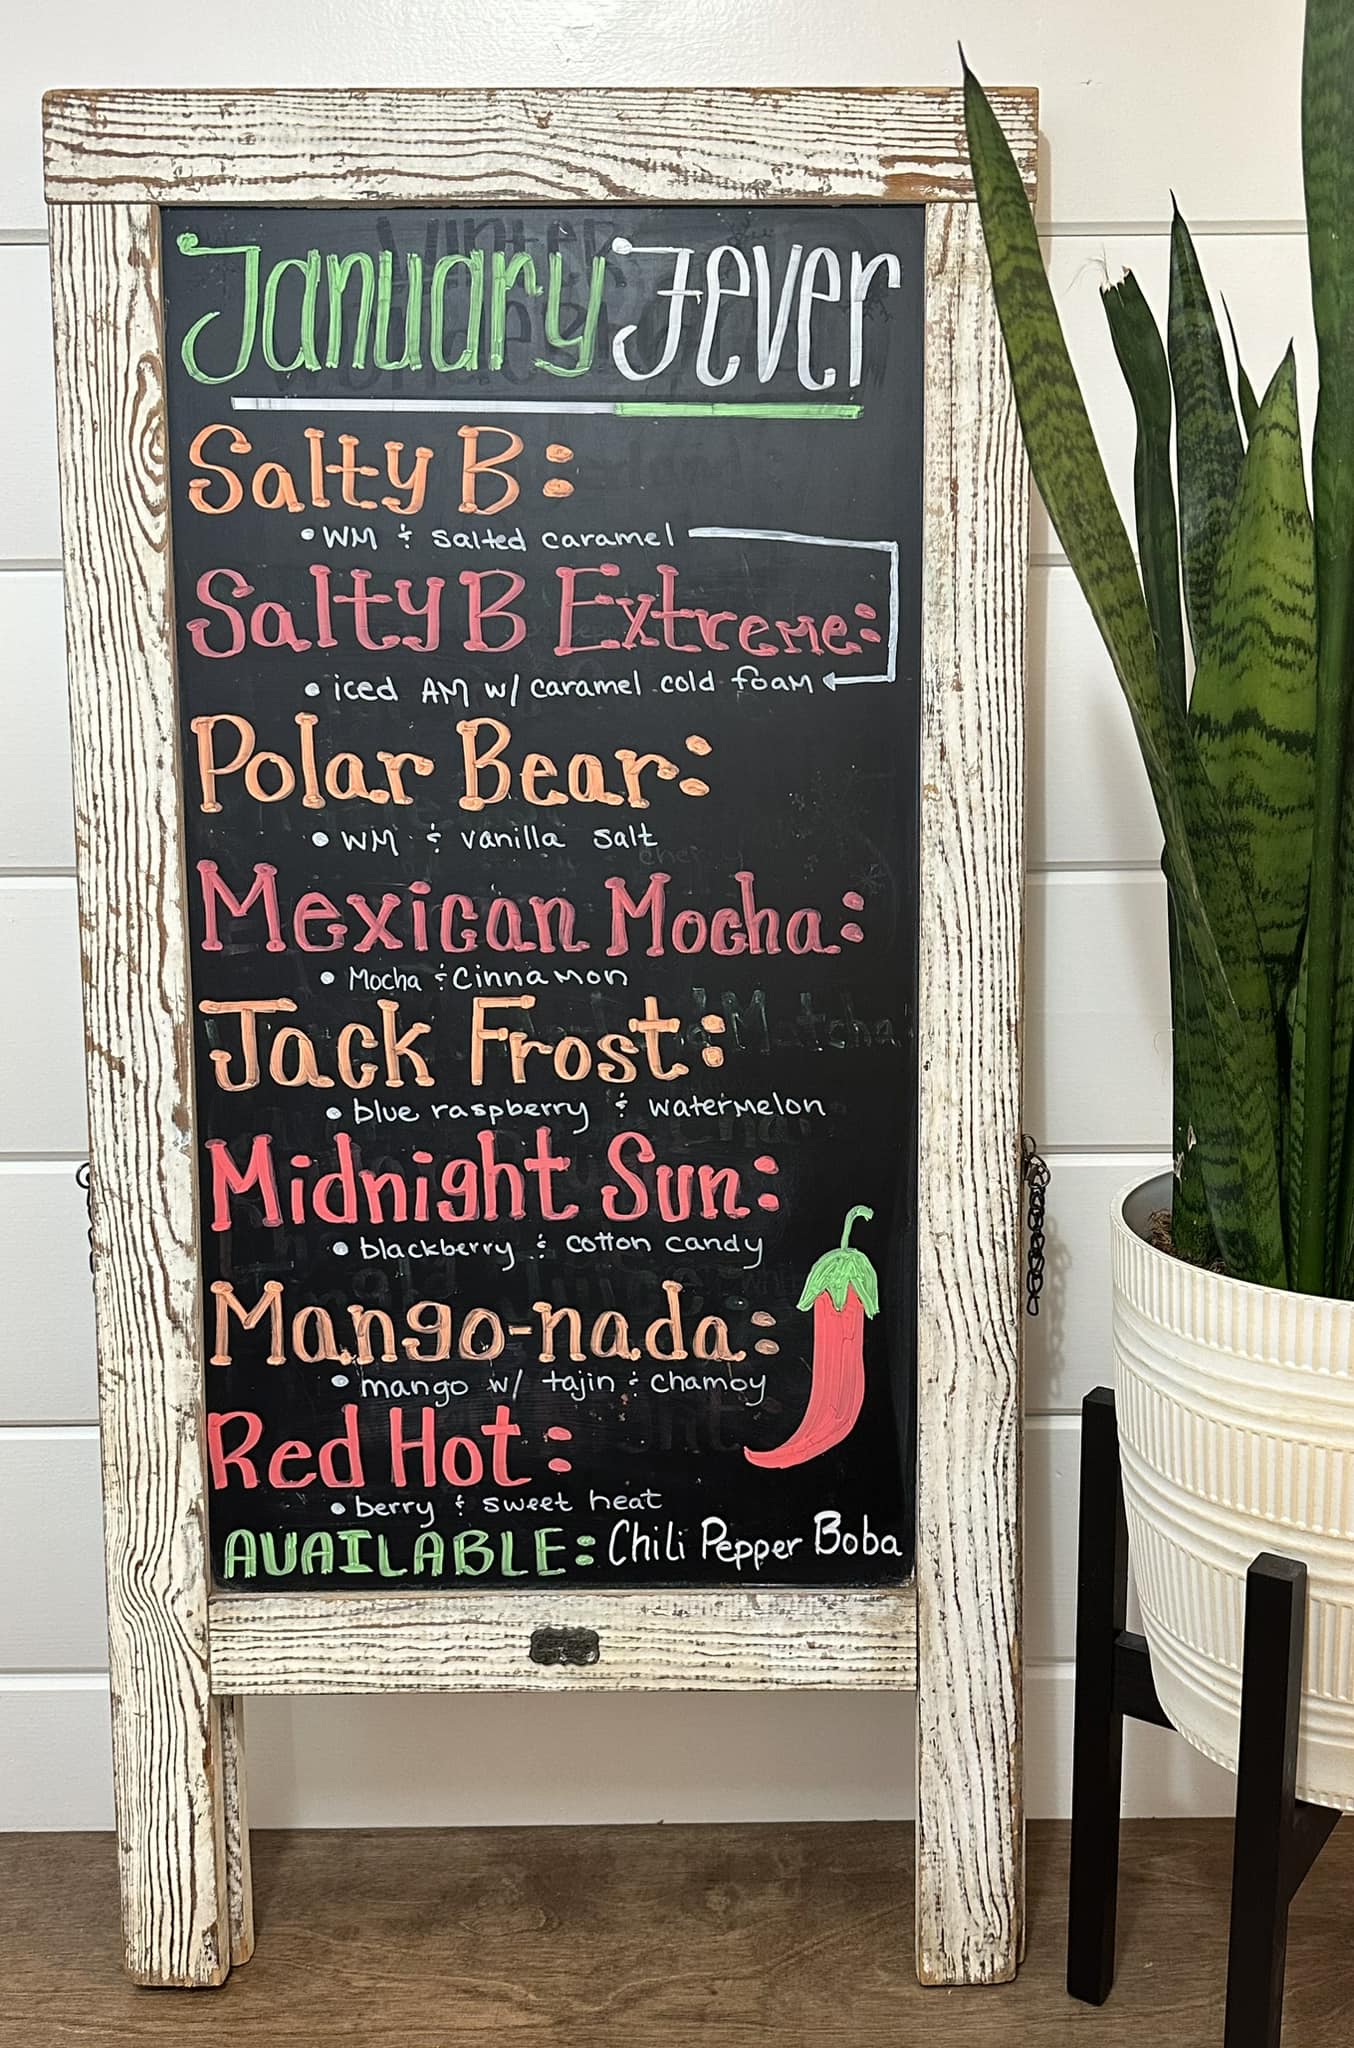 January Fever
Salty B:
• WM & salted caramel
Salty B Extreme:
• iced AM w/ caramel cold foam
Polar Bear:
• WM & vanilla salt
Mexican Mocha:
• Mocha & Cinnamon
Jack Frost:
• blue raspberry & watermelon
Midnight Sun:
• blackberry & cotton candy
Mango-nada:
• mango w/ tajin & chamoy
Red Hot:
• berry & sweet heat
AVAILABLE: Chili Pepper Boba